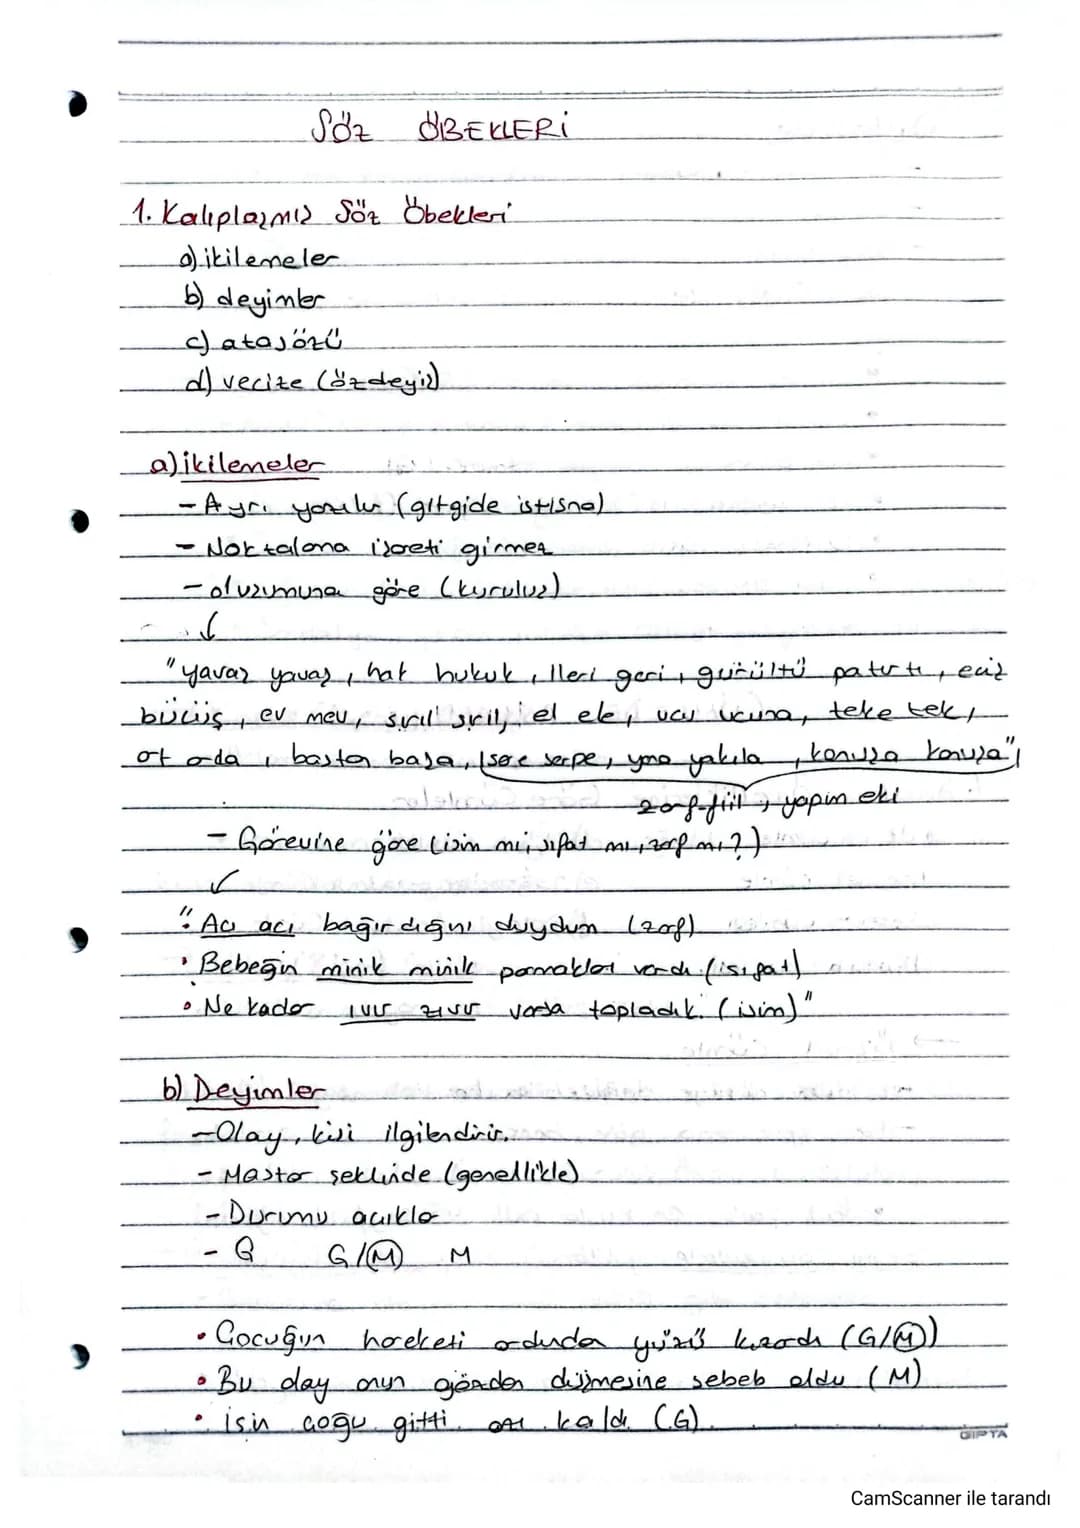 SÖZ ÖBEKLERİ
1. Kalıplaşmış Söz Öbekleri
a) ikilemeler
b) deyimler
c) atasözü
d) vecize (özdeyiş)
a) ikilemeler
- Ayrı yazılır (gitgide istisna)
- Noktalama işareti girmez
- oluşumuna göre (kuruluş)
↓
"yavaş yavaş, hak hukuk, ileri geri, gürültü patırtı, eciş
bücüş, ev mev, şırıl şırıl, el ele, ucu ucuna, teke tek,
ot oda, baştan başa, (sere serpe, yana yakıla, konuşa konuşa"
zarf-fiil, yapım eki
- Görevine göre (isim mi, sıfat mı, zarf mı?)
↙
" • Acı acı bağırdığını duydum (zarf)
• Bebeğin minik minik parmakları vardı. (sıfat)
• Ne kadar ıvır zıvır varsa topladık. (isim)"
b) Deyimler
- Olay, kişi ilgilendirir.
- Mastar şeklinde (genellikle)
- Durumu açıkla
- G G/M M
• Çocuğun hareketi ordudan yüzü kızardı (G/M)
• Bu olay onun gözden düşmesine sebeb oldu (M)
• işin çoğu gitti azı kaldı (G).
GIPTA
CamScanner ile tarandı